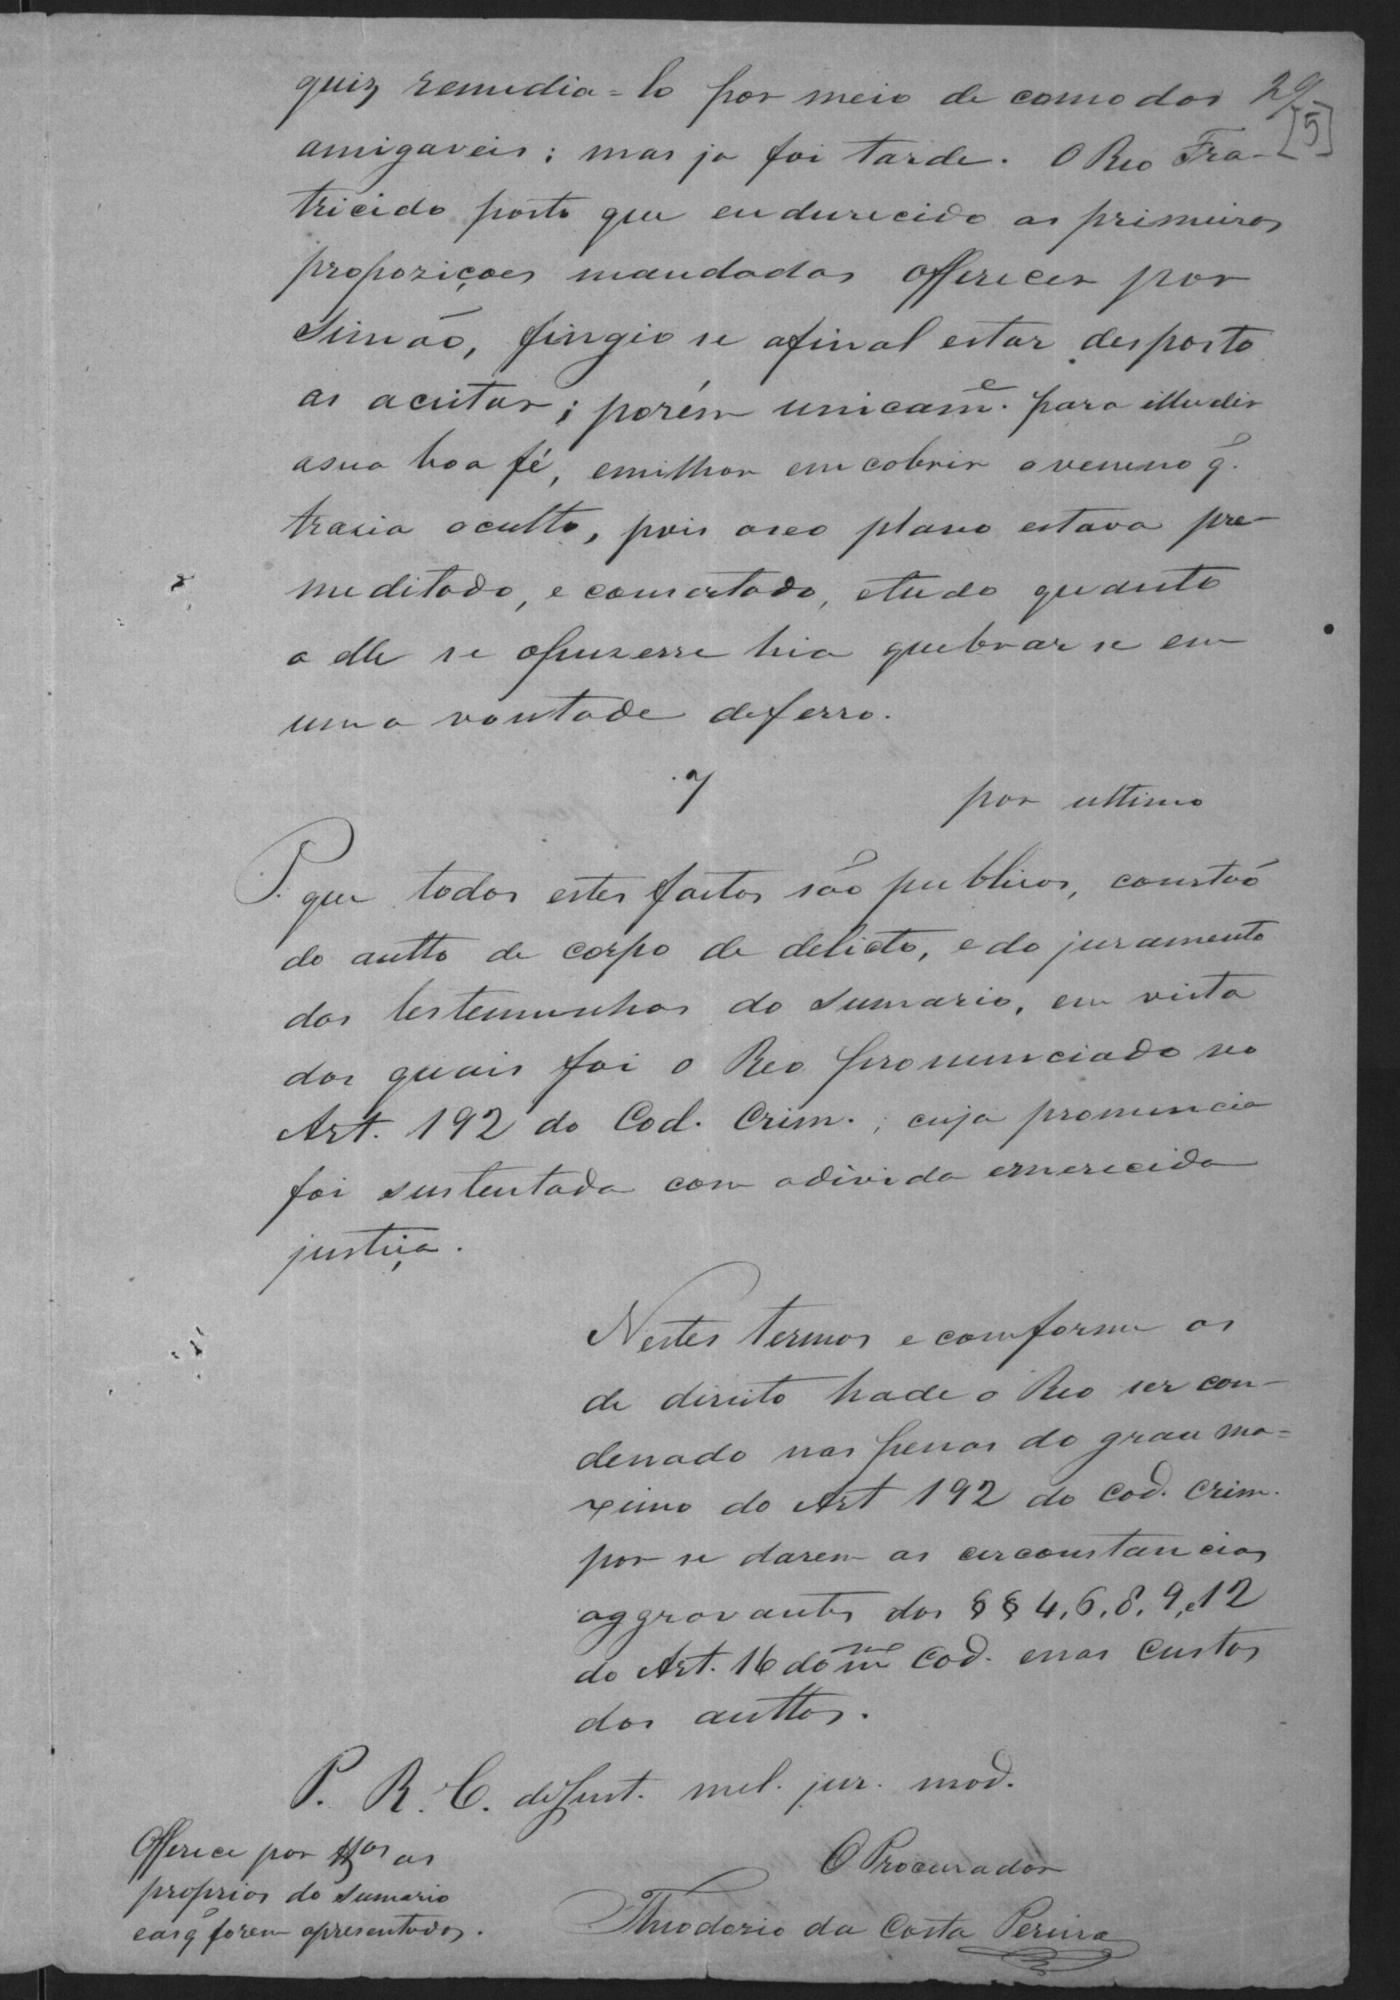 quiz remedia=lo por meio de comodos 29
amigaveis; mas ja foi tarde. O Reo Fra- [5]
tricida posto que endurecido as primeiras
propoziçoes mandadas offerecer por
Simão, fingio se afinal estar desposto
as aceitar; porém unicam.e para illudir
asua boa fé, emilhor emcobrir oveneno q̃.
trazia oculto, pois oseo plano estava pre-
meditado, e comcertado, etudo quanto
a elle se opuzesse hia quebrar se em
uma vontade deferro.
7
por ultimo
P. que todos estes factos são publicos, constão
do autto de corpo de delicto, e do juramento
das testemunhas do Sumario, em vista
dos quais foi o Reo pronunciado no
Art. 192 do Cod. Crim.; cuja pronuncia
foi sustentada com adivida emerecida
justiça.
Nestes termos e comforme os
de direito hade o Reo ser con-
denado nas penas do grau ma=
ximo do Art 192 do Cod. Crim.
por se darem as circonstancias
aggravantes dos §§ 4, 6, 8, 9, e12
do Art. 16 do m.mo Cod. enas Custas
dos auttos.
P. R. C. de mel. jur. mod.
Offerece por tt.as as
proprias do Sumario
easq̃ forem apresentadas.
O Procurador
Theodorio da Costa Pereira